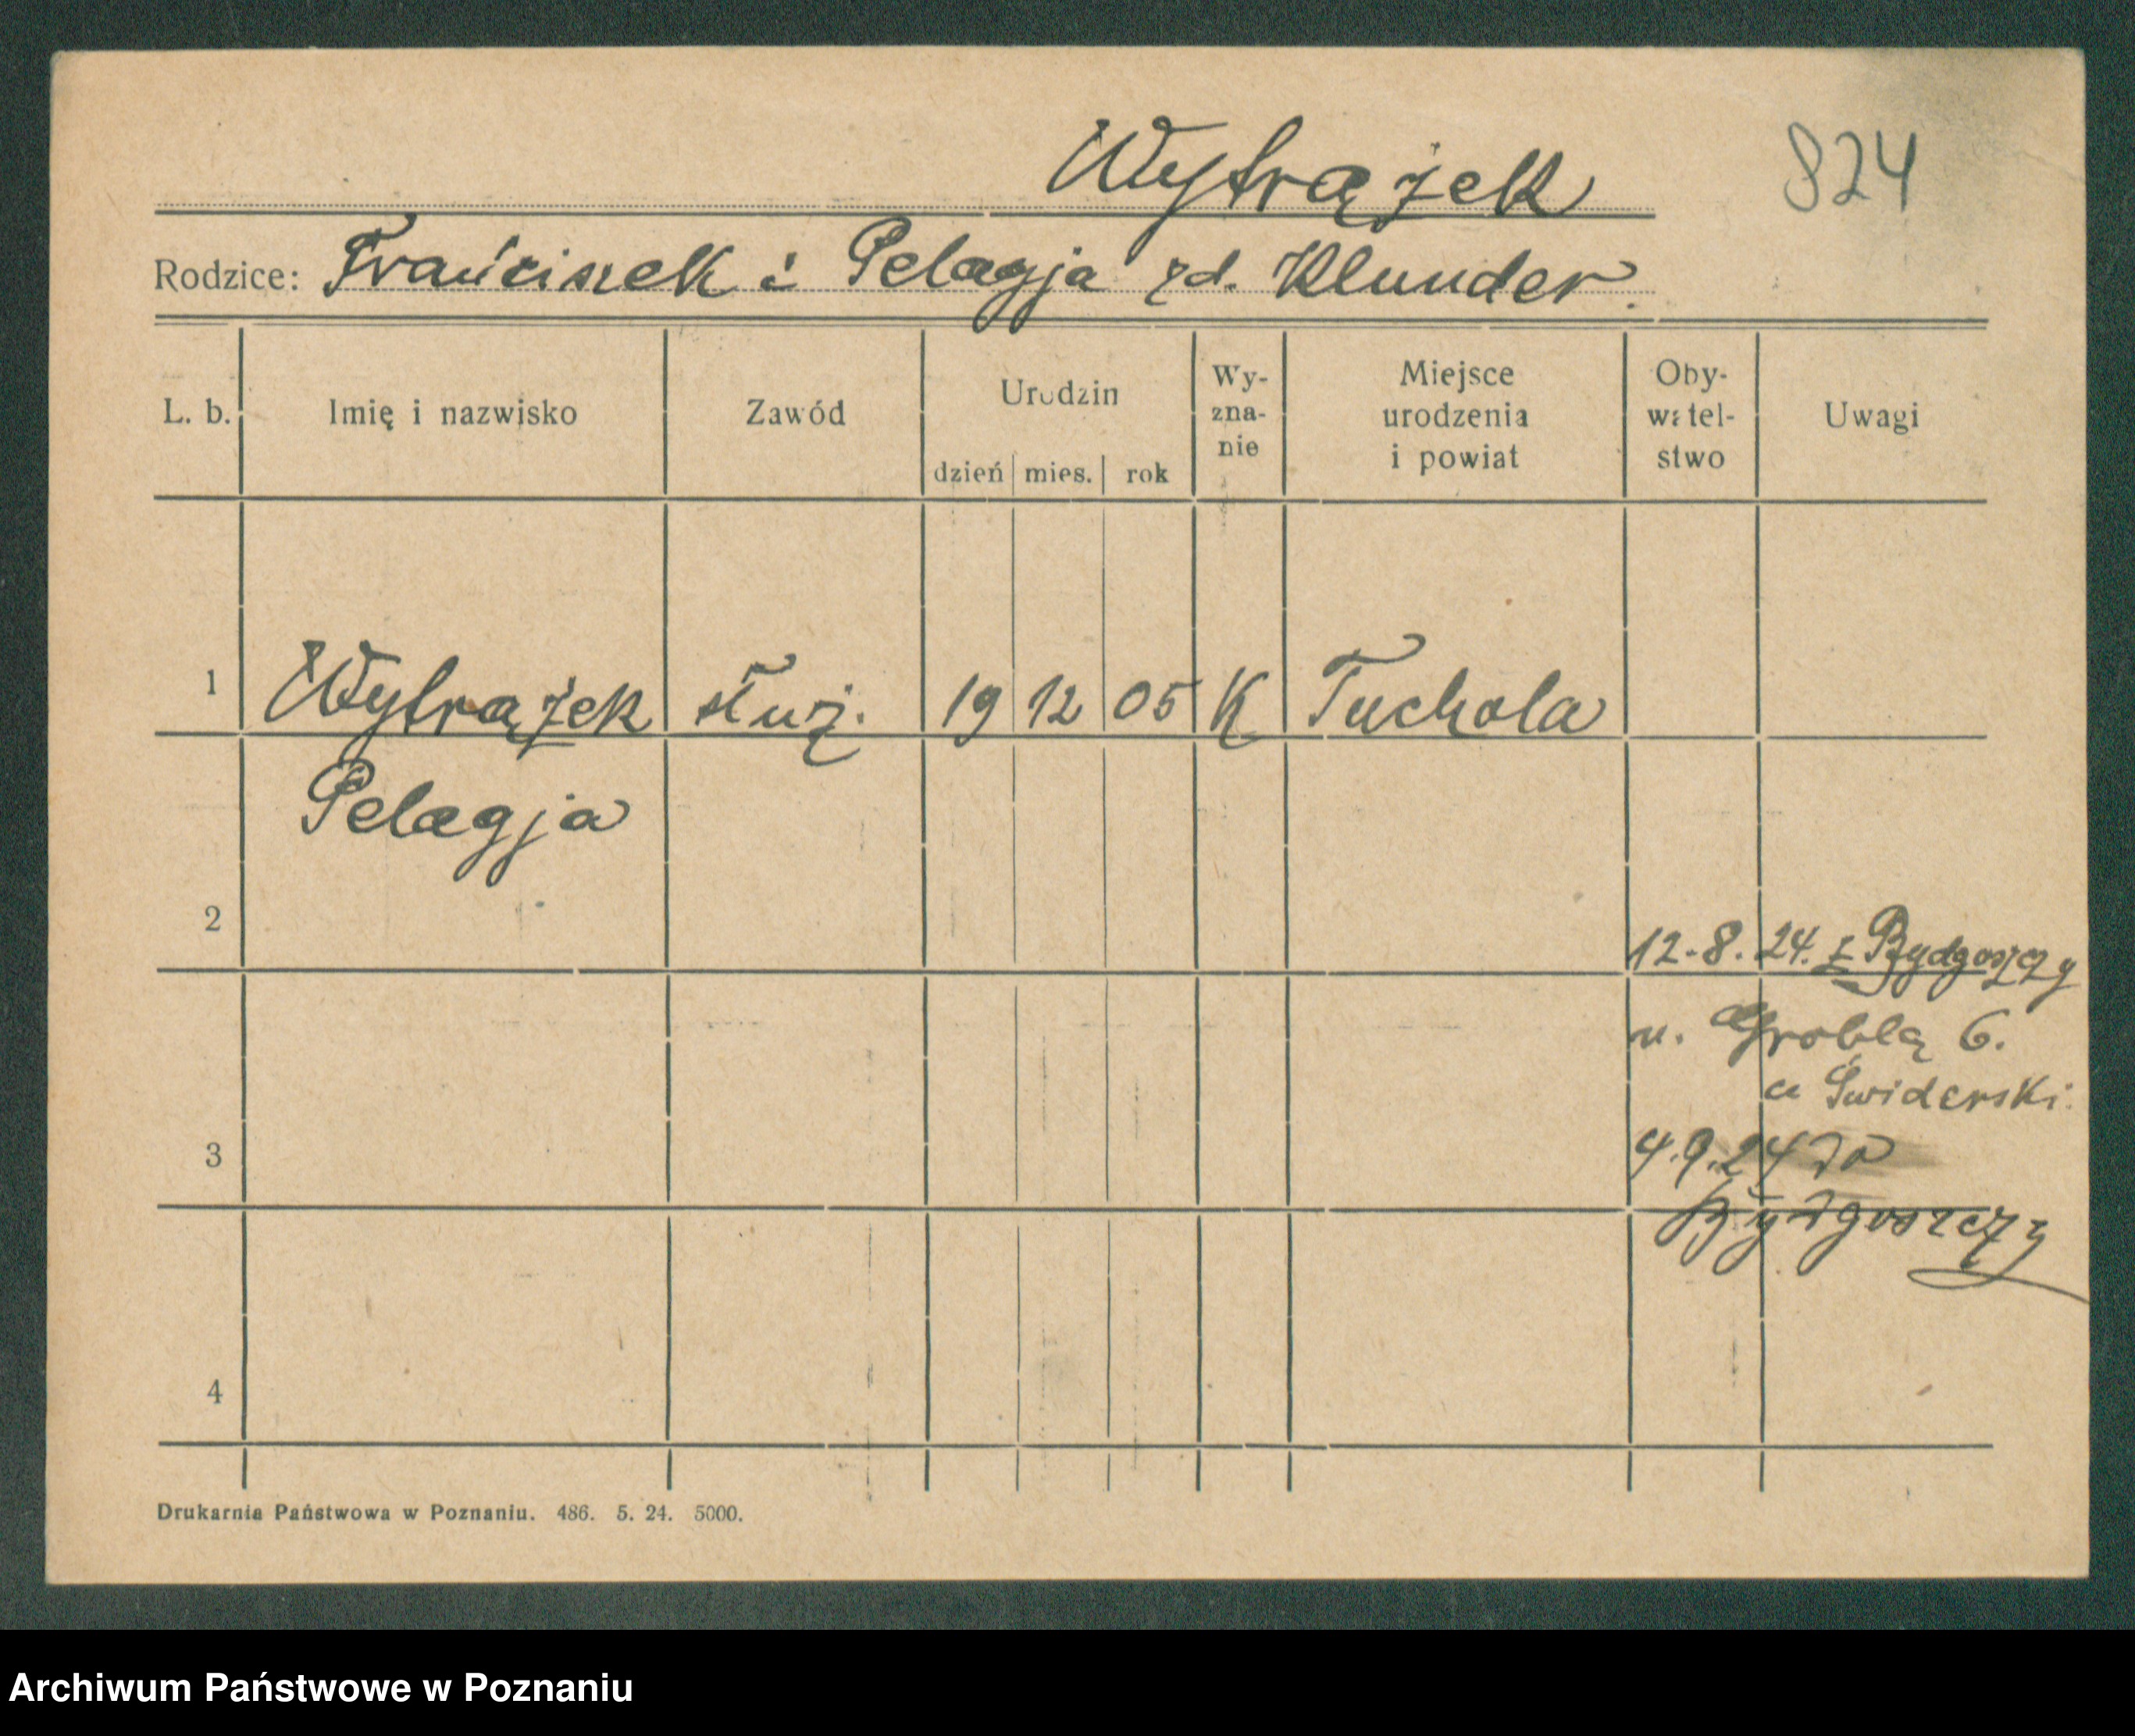 Wytrążek 824
Rodzice: Franciszek i Pelagja zd. Klunder.
L. b. Imię i nazwisko Zawód Urodzin dzień mies. rok Wy-zna-nie Miejsce urodzenia i powiat Oby-watel-stwo Uwagi
1 Wytrążek służ. 19 12 05 K Tuchola
Pelagja
2
12.8.24. z Bydgoszczy
u. Groblą 6.
u Świderski.
3 4.9.24 do
Bydgoszczy
4
Drukarnia Państwowa w Poznaniu. 486. 5. 24. 5000.
Archiwum Państwowe w Poznaniu